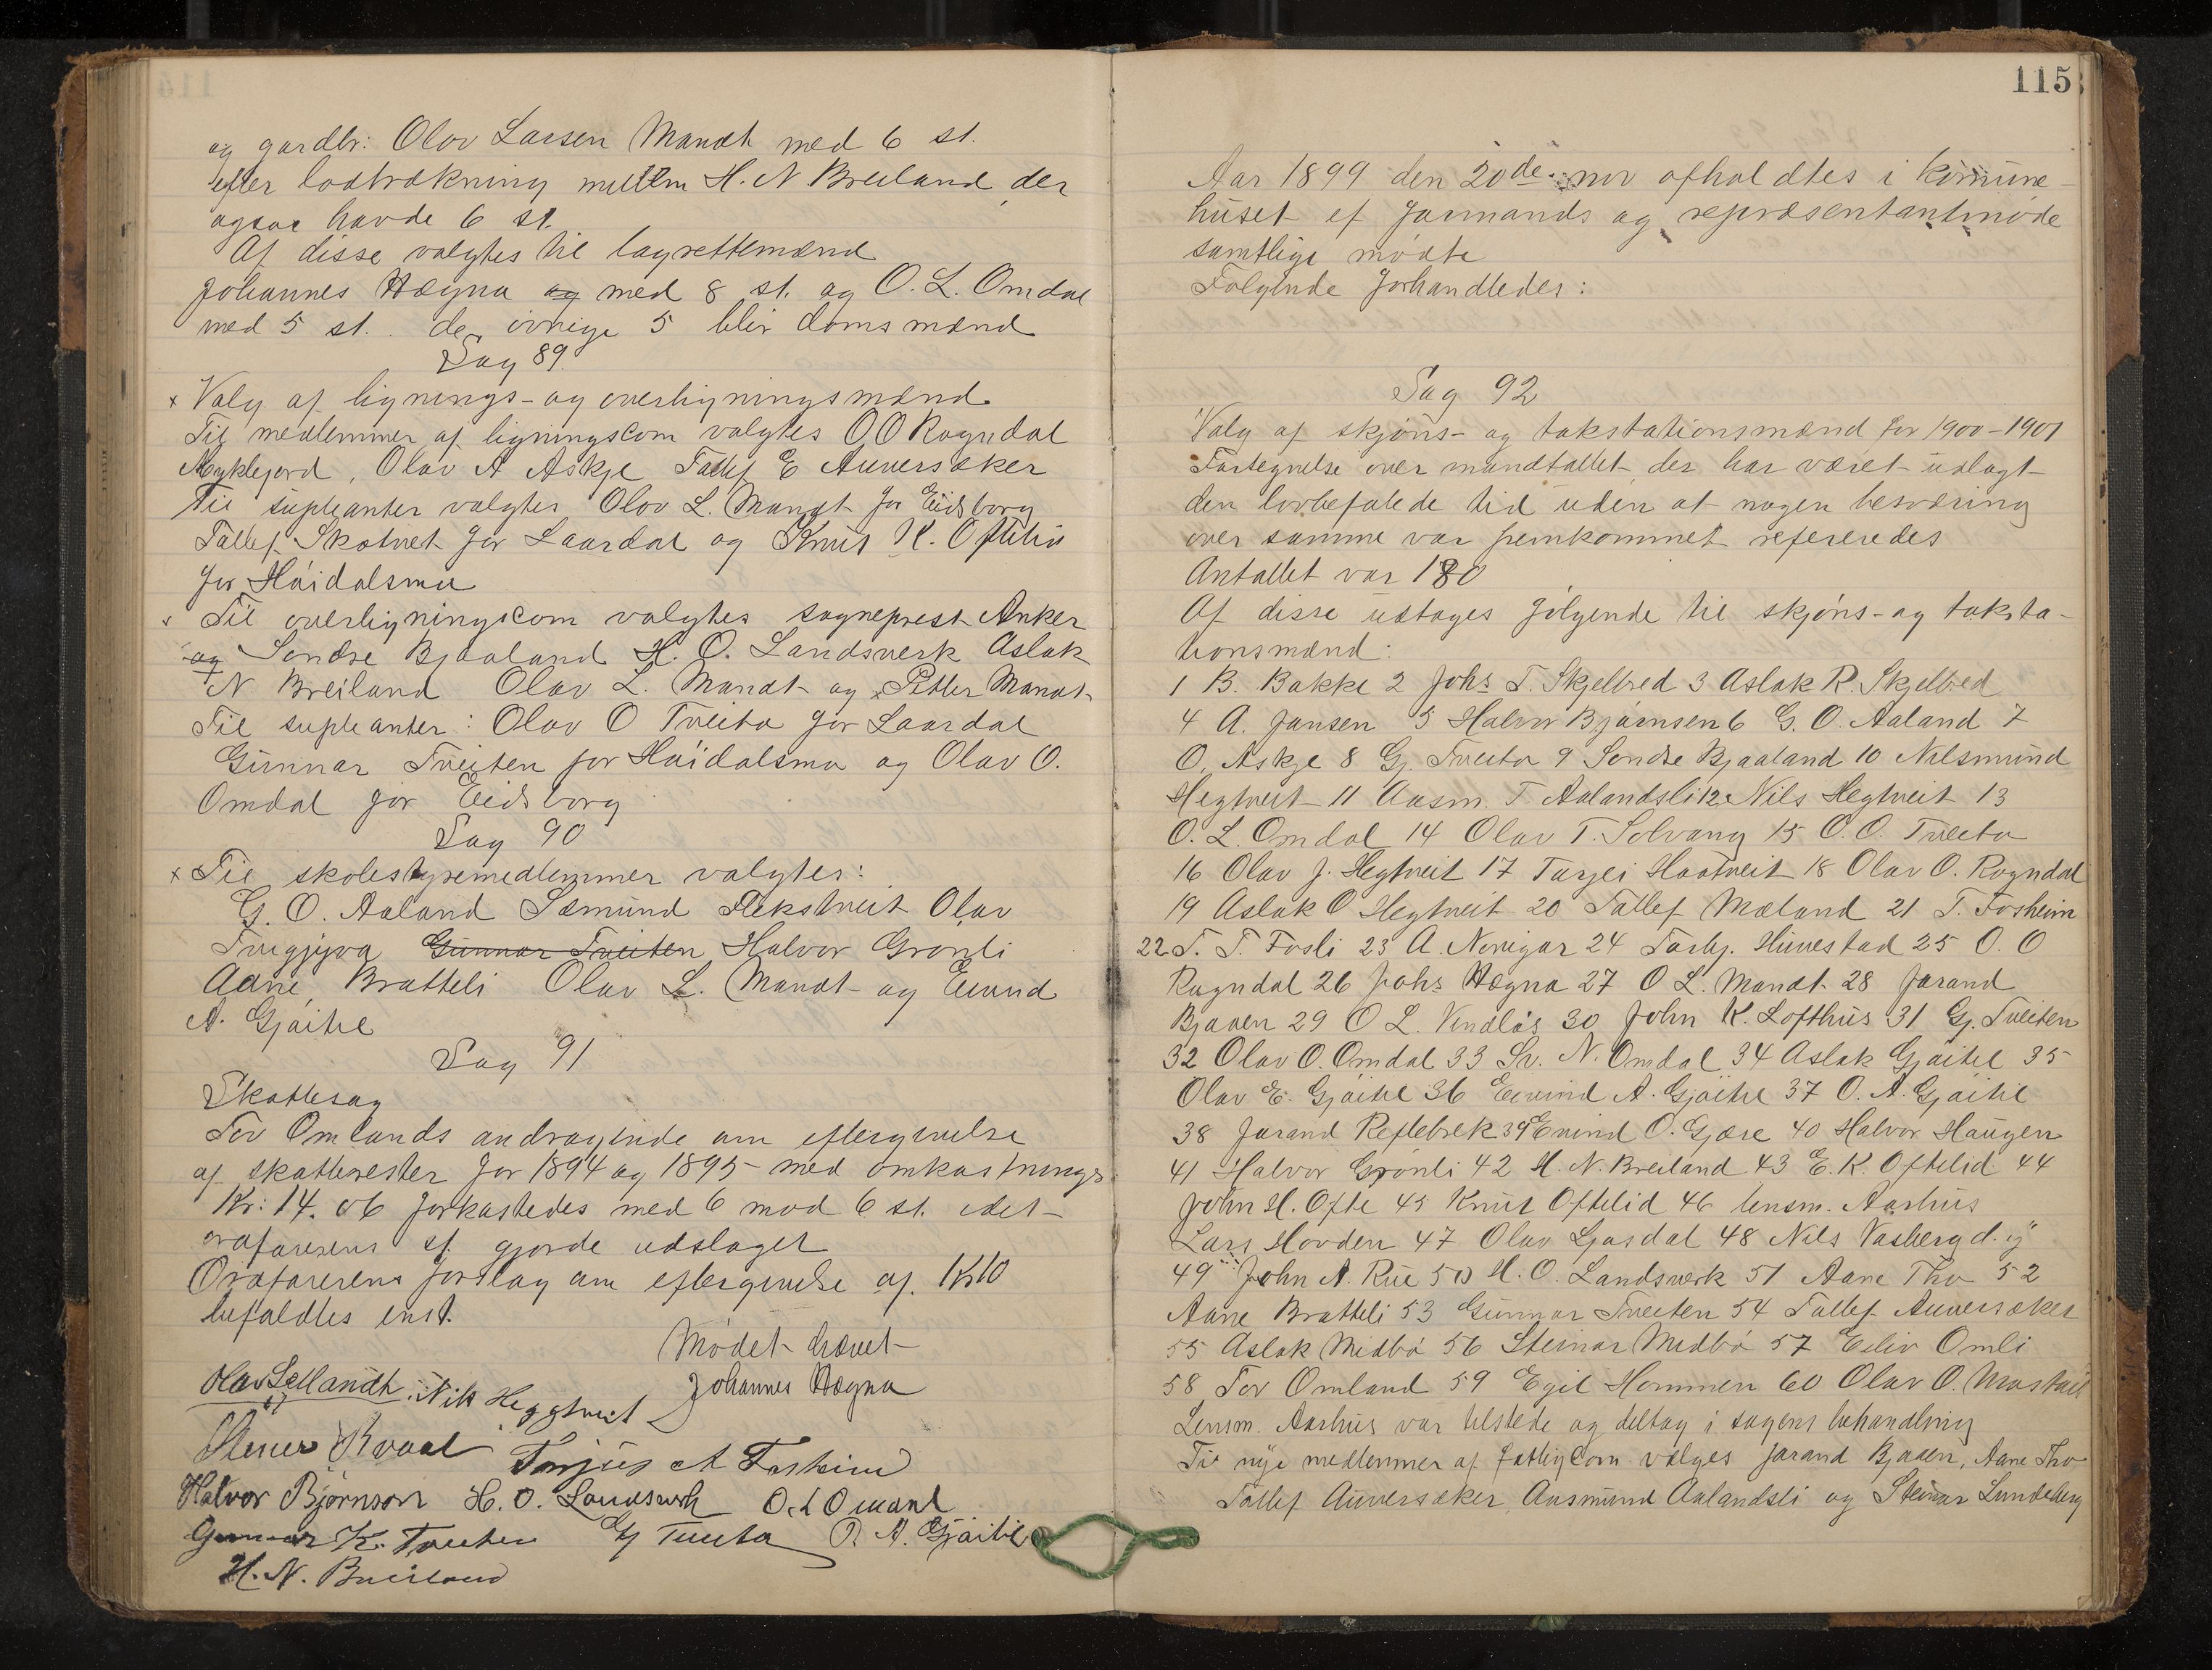 og gardbr: Olav Larsen Mandt med 6 st.
efter lodtrækning mellem H. N Breiland der
ogsaa havde 6 st.
Af disse valgtes til lagrettemænd
Johannes Hægna og med 8 st. og O. L. Omdal
med 5 st. de øvrige 5 blir domsmænd
Sag 89
x Valg af lignings- og overligningsmænd
Til medlemmer af ligningscom valgtes O O Rogndal
Myklejord, Olav A Askje Tallef E Auversæker
Til supleanter valgtes Olov L. Mandt for Eidsborg
Tallef Skotvet for Laardal og Knut K. Oftelid
for Høidalsmo
x Til overligningscom valgtes sogneprest Anker
og Sondre Bjaaland H. O. Landsverk Aslak
N Breiland Olav L. Mandt og Petter Mandt
Til supleanter: Olav O Tveito for Laardal
Gunnar Tveiten for Høidalsmo og Olav O.
Omdal for Eidsborg
Sag 90
x Til skolestyremedlemmer valgtes:
G. O. Aaland Sæmund Flekstveit Olav
Gunnar Tveiten Halvor Grønli
Aane Bratteli Olav L. Mandt og Eivind
A. Gjøitil
Sag 91
Skattesag
Tov Omlands andragende om eftergivelse
af skatterester for 1894 og 1895 med omkostninger
Kr: 14.06 forkastedes med 6 mod 6 st. idet
ordførerens st. gjorde udslaget
Ordførerens forslag om eftergivelse af Kr 10
bifaldtes enst.
Mødet hævet
Johannes Hægna
Olav L Mandt Nils Heggtveit
Steinar Kvaal Torjus A Fosheim
Halvor Bjørnson H. O. Landsverk O. L Omdal
Gunnar K. Tveiten Gj Tveito O. A. Gjøitil
H. N. Breiland
115
Aar 1899 den 20de nov afholdtes i komune-
huset et formands og repræsentantmøde
samtlige mødte
Følgende forhandledes:
Sag 92
Valg af skjøns- og takstationsmænd for 1900-1901
Fortegnelse over mandtallet der har været udlagt
den lovbefalede tid uden at nogen besværing
over samme var fremkommet refereredes
Antallet var 180
Af disse udtoges følgende til skjøns- og taksta-
tionsmænd:
1 B. Bakke 2 Johs T. Skjelbred 3 Aslak R. Skjelbred
4 A. Jansen 5 Halvor Bjørnsen 6 G. O. Aaland 7
O. Askje 8 Gj. Tveito 9 Sondre Bjaaland 10 Nilsmund
Hegtveit 11 Aasm. T Aalandsli 12 Nils Hegtveit 13
O. L. Omdal 14 Olav T. Solvang 15 O. O. Tveito
16 Olav J. Hegtveit 17 Tarjei Haatveit 18 Olav O. Rogndal
19 Aslak O Hegtveit 20 Tallef Mæland 21 T. Fosheim
22 T. T. Fosli 23 A. Norigar 24 Torbj. Hunestad 25 O. O
Rogndal 26 Johs Hægna 27 O L. Mandt 28 Jarand
Bjaaen 29 O L. Vindløs 30 John K. Lofthus 31 Gj. Tveiten
32 Olav O. Omdal 33 Sv. N. Omdal 34 Aslak Gjøitil 35
Olav E. Gjøitil 36 Eivind A. Gjøitil 37 O. A. Gjøitil
38 Jarand Reflebrek 39 Eivind O. Gjære 40 Halvor Haugen
41 Halvor Grønli 42 H. N. Breiland 43 E. K. Oftelid 44
John H. Ofte 45 Knut Oftelid 46 lensm. Aarhus
Lars Hovden 47 Olav Ljosdal 48 Nils Vasberg d. y
49 John A. Rue 50 H. O. Landsverk 51 Aane Tho 52
Aane Bratteli 53 Gunnar Tveiten 54 Tallef Auversæker
55 Aslak Midbø 56 Steinar Midbø 57 Eiliv Omli
58 Tov Omland 59 Egil Hommen 60 Olav O.
Lensm. Aarhus var tilstede og deltog i sagens behandling
Til nye medlemmer af fattigcom valges Jarand Bjaaen, Aane Tho
Tallef Auversæker Aasmund Aalandsli og Steinar Lundeberg